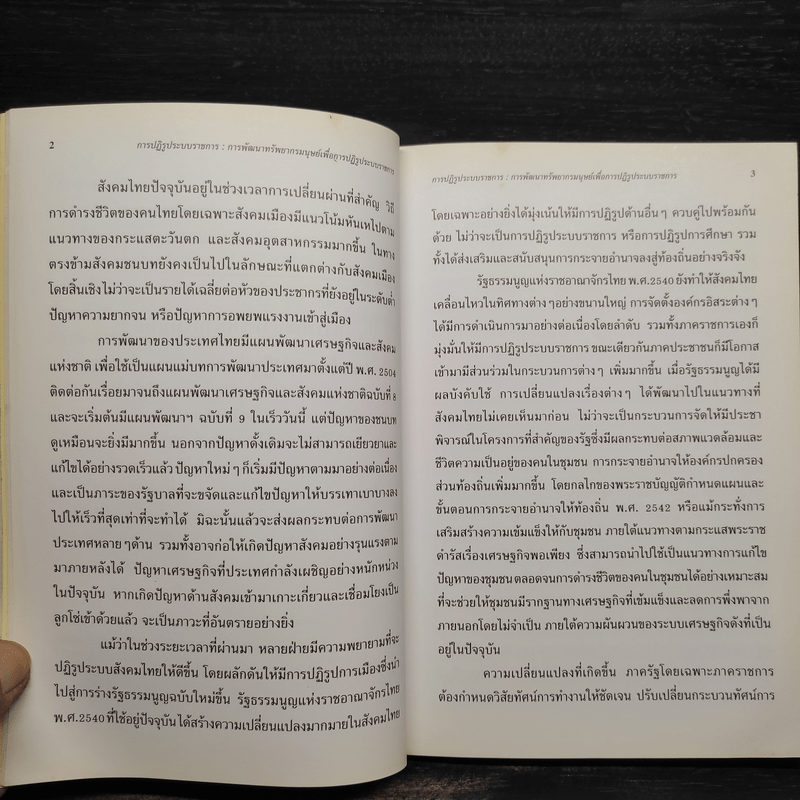 2
การปฏิรูประบบราชการ : การพัฒนาทรัพยากรมนุษย์เพื่อการปฏิรูประบบราชการ
สังคมไทยปัจจุบันอยู่ในช่วงเวลาการเปลี่ยนผ่านที่สำคัญ วิถี
การดำรงชีวิตของคนไทยโดยเฉพาะสังคมเมืองมีแนวโน้มหันเหไปตาม
แนวทางของกระแสตะวันตก และสังคมอุตสาหกรรมมากขึ้น ในทาง
ตรงข้ามสังคมชนบทยังคงเป็นไปในลักษณะที่แตกต่างกับสังคมเมือง
โดยสิ้นเชิง ไม่ว่าจะเป็นรายได้เฉลี่ยต่อหัวของประชากรที่ยังอยู่ในระดับต่ำ
ปัญหาความยากจน หรือปัญหาการอพยพแรงงานเข้าสู่เมือง
การพัฒนาของประเทศไทยมีแผนพัฒนาเศรษฐกิจและสังคม
แห่งชาติ เพื่อใช้เป็นแผนแม่บทการพัฒนาประเทศมาตั้งแต่ปี พ.ศ. 2504
ติดต่อกันเรื่อยมาจนถึงแผนพัฒนาเศรษฐกิจและสังคมแห่งชาติฉบับที่ 8
และจะเริ่มต้นมีแผนพัฒนาฯ ฉบับที่ 9 ในเร็ววันนี้ แต่ปัญหาของชนบท
ดูเหมือนจะยิ่งมีมากขึ้น นอกจากปัญหาดั้งเดิมจะไม่สามารถเยียวยาและ
แก้ไขได้อย่างรวดเร็วแล้ว ปัญหาใหม่ ๆ ก็เริ่มมีปัญหาตามมาอย่างต่อเนื่อง
และเป็นภาระของรัฐบาลที่จะขจัดและแก้ไขปัญหาให้บรรเทาเบาบางลง
ไปให้เร็วที่สุดเท่าที่จะทำได้ มิฉะนั้นแล้วจะส่งผลกระทบต่อการพัฒนา
ประเทศหลาย ๆ ด้าน รวมทั้งอาจก่อให้เกิดปัญหาสังคมอย่างรุนแรงตาม
มาภายหลังได้ ปัญหาเศรษฐกิจที่ประเทศกำลังเผชิญอย่างหนักหน่วง
ในปัจจุบัน หากเกิดปัญหาด้านสังคมเข้ามาเกาะเกี่ยวและเชื่อมโยงเป็น
ลูกโซ่เข้าด้วยแล้ว จะเป็นภาวะที่อันตรายอย่างยิ่ง
แม้ว่าในช่วงระยะเวลาที่ผ่านมา หลายฝ่ายมีความพยายามที่จะ
ปฏิรูประบบสังคมไทยให้ดีขึ้น โดยผลักดันให้มีการปฏิรูปการเมืองซึ่งนำ
ไปสู่การร่างรัฐธรรมนูญฉบับใหม่ขึ้น รัฐธรรมนูญแห่งราชอาณาจักรไทย
พ.ศ.2540 ที่ใช้อยู่ปัจจุบันได้สร้างความเปลี่ยนแปลงมากมายในสังคมไทย
การปฏิรูประบบราชการ : การพัฒนาทรัพยากรมนุษย์เพื่อการปฏิรูประบบราชการ
3
โดยเฉพาะอย่างยิ่งได้มุ่งเน้นให้มีการปฏิรูปด้านอื่น ๆ ควบคู่ไปพร้อมกัน
ด้วย ไม่ว่าจะเป็นการปฏิรูประบบราชการ หรือการปฏิรูปการศึกษา รวม
ทั้งได้ส่งเสริมและสนับสนุนการกระจายอำนาจลงสู่ท้องถิ่นอย่างจริงจัง
รัฐธรรมนูญแห่งราชอาณาจักรไทย พ.ศ.2540 ยังทำให้สังคมไทย
เคลื่อนไหวในทิศทางต่าง ๆ อย่างขนานใหญ่ การจัดตั้งองค์กรอิสระต่าง ๆ
ได้มีการดำเนินการมาอย่างต่อเนื่องโดยลำดับ รวมทั้งภาคราชการเองก็
มุ่งมั่นให้มีการปฏิรูประบบราชการ ขณะเดียวกันภาคประชาชนก็มีโอกาส
เข้ามามีส่วนร่วมในกระบวนการต่าง ๆ เพิ่มมากขึ้น เมื่อรัฐธรรมนูญได้มี
ผลบังคับใช้ การเปลี่ยนแปลงเรื่องต่าง ๆ ได้พัฒนาไปในแนวทางที่
สังคมไทยไม่เคยเห็นมาก่อน ไม่ว่าจะเป็นกระบวนการจัดให้มีประชา
พิจารณ์ในโครงการที่สำคัญของรัฐซึ่งมีผลกระทบต่อสภาพแวดล้อมและ
ชีวิตความเป็นอยู่ของคนในชุมชน การกระจายอำนาจให้องค์กรปกครอง
ส่วนท้องถิ่นเพิ่มมากขึ้น โดยกลไกของพระราชบัญญัติกำหนดแผนและ
ขั้นตอนการกระจายอำนาจให้ท้องถิ่น พ.ศ. 2542 หรือแม้กระทั่งการ
เสริมสร้างความเข้มแข็งให้กับชุมชน ภายใต้แนวทางตามกระแสพระราช
ดำรัสเรื่องเศรษฐกิจพอเพียง ซึ่งสามารถนำไปใช้เป็นแนวทางการแก้ไข
ปัญหาของชุมชน ตลอดจนการดำรงชีวิตของคนในชุมชนได้อย่างเหมาะสม
ที่จะช่วยให้ชุมชนมีรากฐานทางเศรษฐกิจที่เข้มแข็งและลดการพึ่งพาจาก
ภายนอกโดยไม่จำเป็น ภายใต้ความผันผวนของระบบเศรษฐกิจดังที่เป็น
อยู่ในปัจจุบัน
ความเปลี่ยนแปลงที่เกิดขึ้น ภาครัฐโดยเฉพาะภาคราชการ
ต้องกำหนดวิสัยทัศน์การทำงานให้ชัดเจน ปรับเปลี่ยนกระบวนทัศน์การ